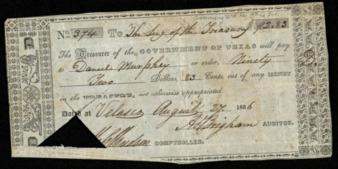 No. 394 To The Sec of the Treasury $92.83
The Treasurer of the GOVERNMENT OF TEXAS will pay
to Daniel Murphey or order, Ninety
Two Dollars 83 Cents out of any MONEY
in the TREASURY, not otherwise appropriated
Dated at Velasco August 27 1836
A Brigham AUDITOR.
COMPTROLLER.